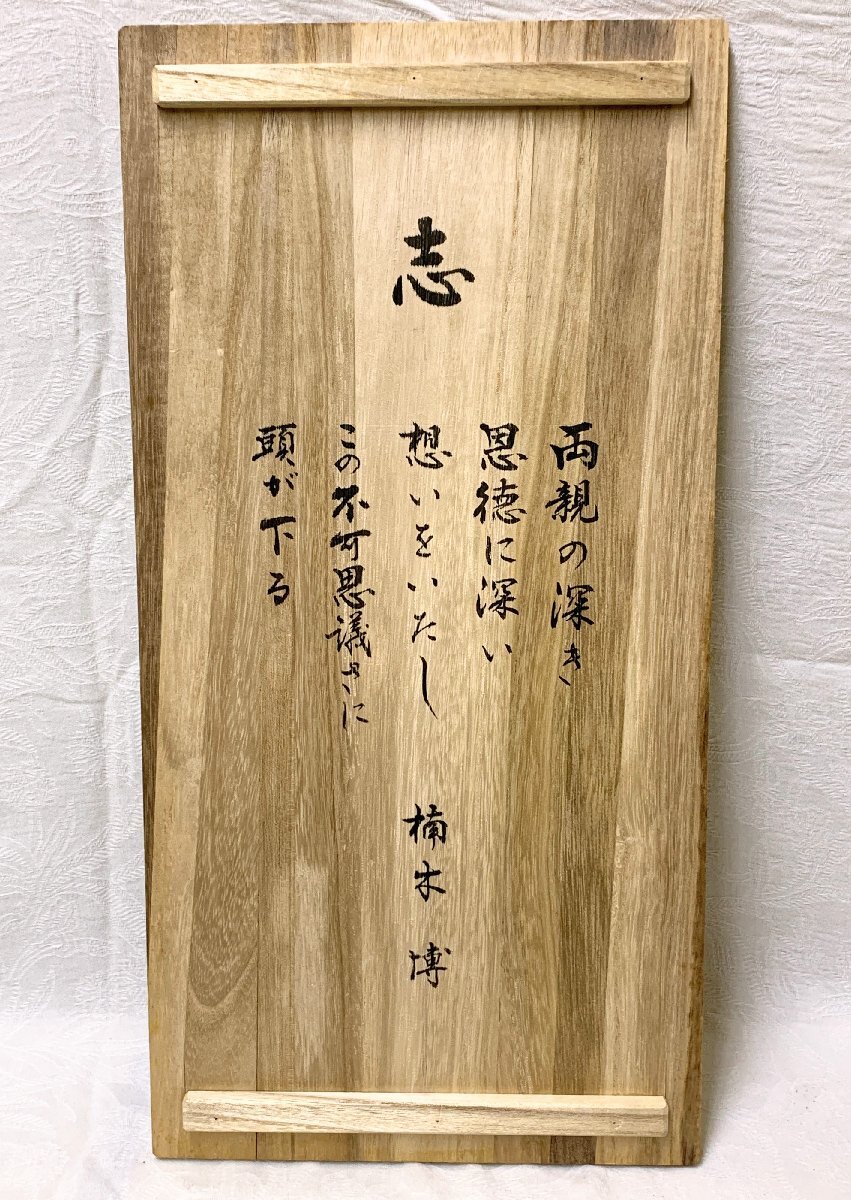 志
両親の深き
恩徳に深い
想いをいたし
この不可思議さに
頭が下る
楠木 博